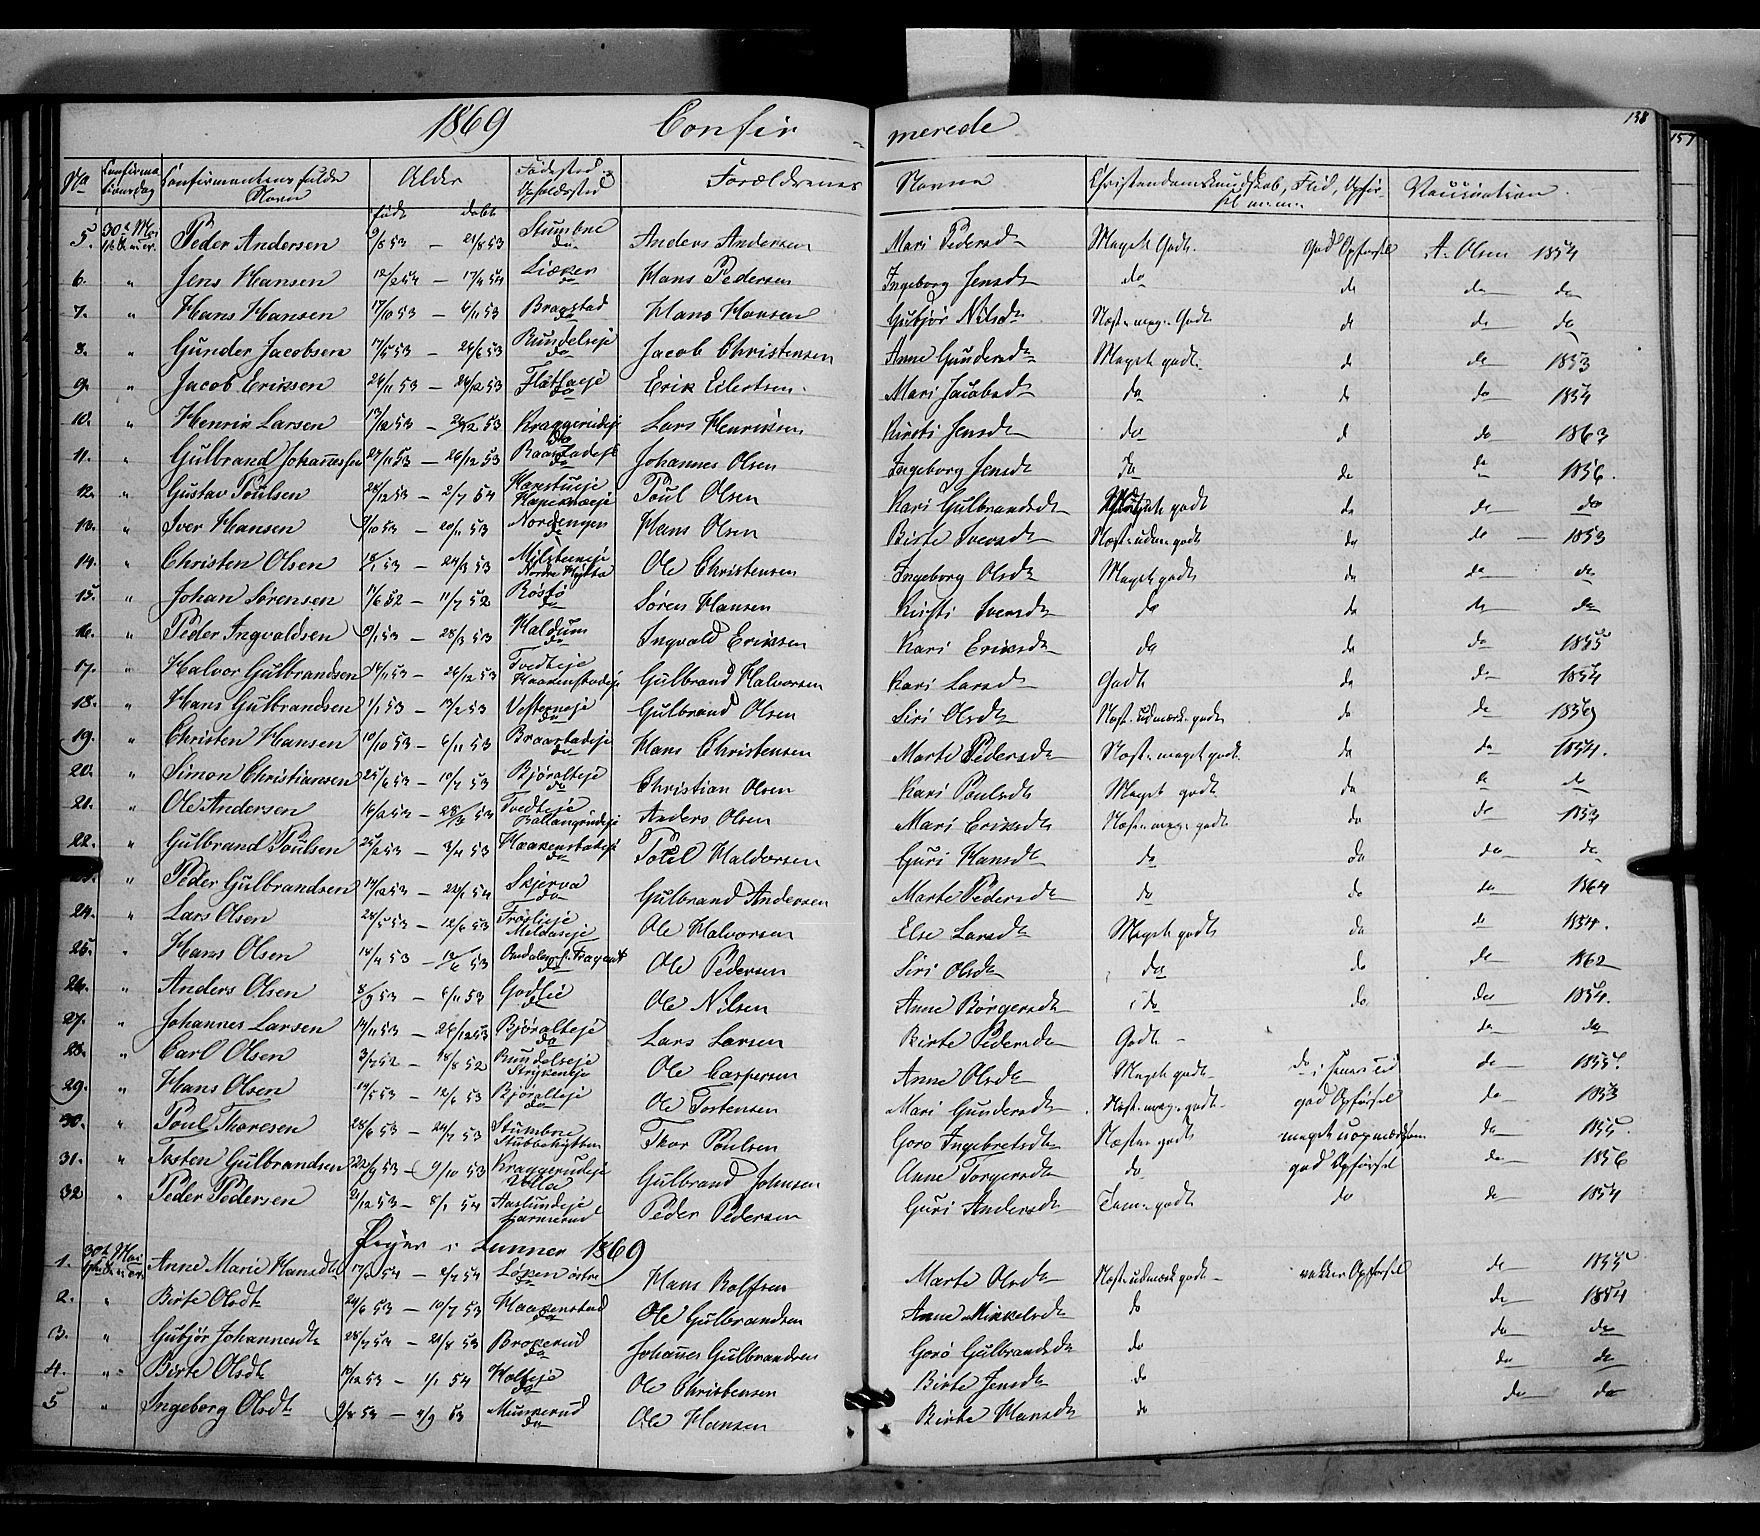 1869 Confir- merede 138
157
No Confirmationsdag Confirmantens fulde Navn Alder født døbt Fødested Opholdssted Forældrenes Navne Christendomskundskab, Flid, Opførsel m.m. Vaccination.
5. 30te Mai Peder Andersen 9/8 53 — 21/8 53 Stumbne do Anders Andersen Mari Pedersdr Meget Godt. god Opførsel A. Olsen 1854
6. " Jens Hansen 12/2 54 — 17/4 54 do Hans Pedersen Ingeborg Jensdr do do do do
7. " Hans Hansen 17/10 53 — 6/11 53 Bragstad do Hans Hansen Gubjør Nilsdr Næst. meg. Godt do do do
8. " Gunder Jacobsen 17/5 53 — 24/6 53 Rundelseje do Jacob Christensen Anne Gundersdr Meget godt. do do 1853
9. " Jacob Eriksen 24/11 53 — 24/12 53 Flatlaeje do Erik Eilertsen Mari Jacobsdr do do do 1854
10. " Henrik Larsen 17/12 53 — 26/12 53 Kraggerudeje do Lars Henriksen Kirsti Jensdr do do do 1863
11. " Gulbrand Johannessen 27/11 53 — 26/12 53 Raastadeje do Johannes Olsen Ingeborg Jensdr do do do 1856.
12. " Gustav Poulsen 24/12 53 — 2/7 54 Poul Olsen Kari Gulbrandsdr godt do do do
13. " Iver Hansen 9/10 53 — 20/11 53 Nordengen do Hans Olsen Birte Iversdr Næst. udm. godt do do — 1853
14. " Christen Olsen 53 — 24/3 53 Nordre Hytta Ole Christensen Ingeborg Olsdr Meget godt do do do
15. " Johan Sørensen 17/6 52 — 11/7 52 Røstø do Søren Hansen Kirsti Iversdr do do do do
16. " Peder Ingvaldsen 9/1 53 — 28/3 53 Haldum do Ingvald Eriksen Kari Eriksdr do do do 1855
17. " Halvor Gulbrandsen 14/11 53 — 26/12 53 Tvedteje Haakenstadeje Gulbrand Halvorsen Kari Larsdr Godt do do 1854
18. " Hans Gulbrandsen 1/1 53 — 13/2 53 Vesterneje do Gulbrand Olsen Siri Olsdr Næst. udmærk. godt do do 1856
19. " Christen Hansen 10/10 53 — 6/11 53 Braastadeje do Hans Christensen Marte Pedersdr Næst. meget godt. do do 1854.
20. " Simon Christiansen 25/6 53 — 10/7 53 Bjøralteje do Christian Olsen Kari Poulsdr Meget godt do do do
21. " Ole Andersen 16/2 53 — 28/3 53 Tvedteje Ballangrudeje Anders Olsen Mari Eriksdr Næst. meg. godt do do 1853
22. " Gulbrand Poulsen 25/2 53 — 3/4 53 Haakenstadeje do Poul Haldorsen Guri Hansdr do do do do
23. " Peder Gulbrandsen 14/12 53 — 22/1 54 Skjerva do Gulbrand Andersen Marte Pedersdr do do do 1864
24. " Lars Olsen 24/5 53 — 12/6 53 Frøslieje Mildaseje Ole Halvorsen Else Larsdr Meget godt do do 1854.
25. " Hans Olsen 14/4 53 — 12/6 53 do Ole Pedersen Siri Olsdr do do do 1862
26. " Anders Olsen 8/9 53 — 6/11 53 Godlie do Ole Nilsen Anne Børgersdr do do do 1854.
27. " Johannes Larsen 13/11 53 — 26/12 53 Bjøralteje do Lars Larsen Birte Pedersdr Godt do do
28. " Carl Olsen 3/7 52 — 8/8 52 Rundelseje Strykeneje Ole Caspersen Anne Olsdr Meget godt do i do 1855.
29. " Hans Olsen 14/5 53 — 12/6 53 Bjøralteje do Ole Torstensen Mari Gundersdr Næst. meg. godt god Opførsel do 1853
30. " Poul Thoresen 28/6 53 — 24/7 53 Stumbne Stubbehytten Thor Poulsen Goro Ingebretsdr Næsten godt meget uopmærksom do 1855.
31. " Torsten Gulbrandsen 22/9 53 — 9/10 53 Kraggerudeje Volla Gulbrand Johnsen Anne Torgersdr do god Opførsel do 1856
32 " Peder Pedersen 21/12 53 — 8/1 54 Aaslundeje Larmerud Peder Pedersen Guri Andersdr Tem. godt do do 1854
Piger i Lunner 1869
1. 30te Mai Anne Marie Hansdtr 17/2 54 — 2/7 54 Løken østre Hans Rolfsen Marte Olsdr Næst. udmærk. godt vakker Opførsel do 1855
2. " Birte Olsdtr 24/6 53 — 10/7 53 Haakenstad do Ole Gulbrandsen Anne Mikkelsdr do do 1854
3. " Gubjør Johannesdtr 28/7 53 — 21/8 53 Brokerud do Johannes Gulbrandsen Goro Gulbrandsdr do do do
4. " Birte Olsdtr 17/12 53 — 1/1 54 Holteje do Ole Christensen Birte Jensdr do do do
5 " Ingeborg Olsdtr 9/8 53 — 4/9 53 Munkerud do Ole Hansen Birte Hansdr do do do